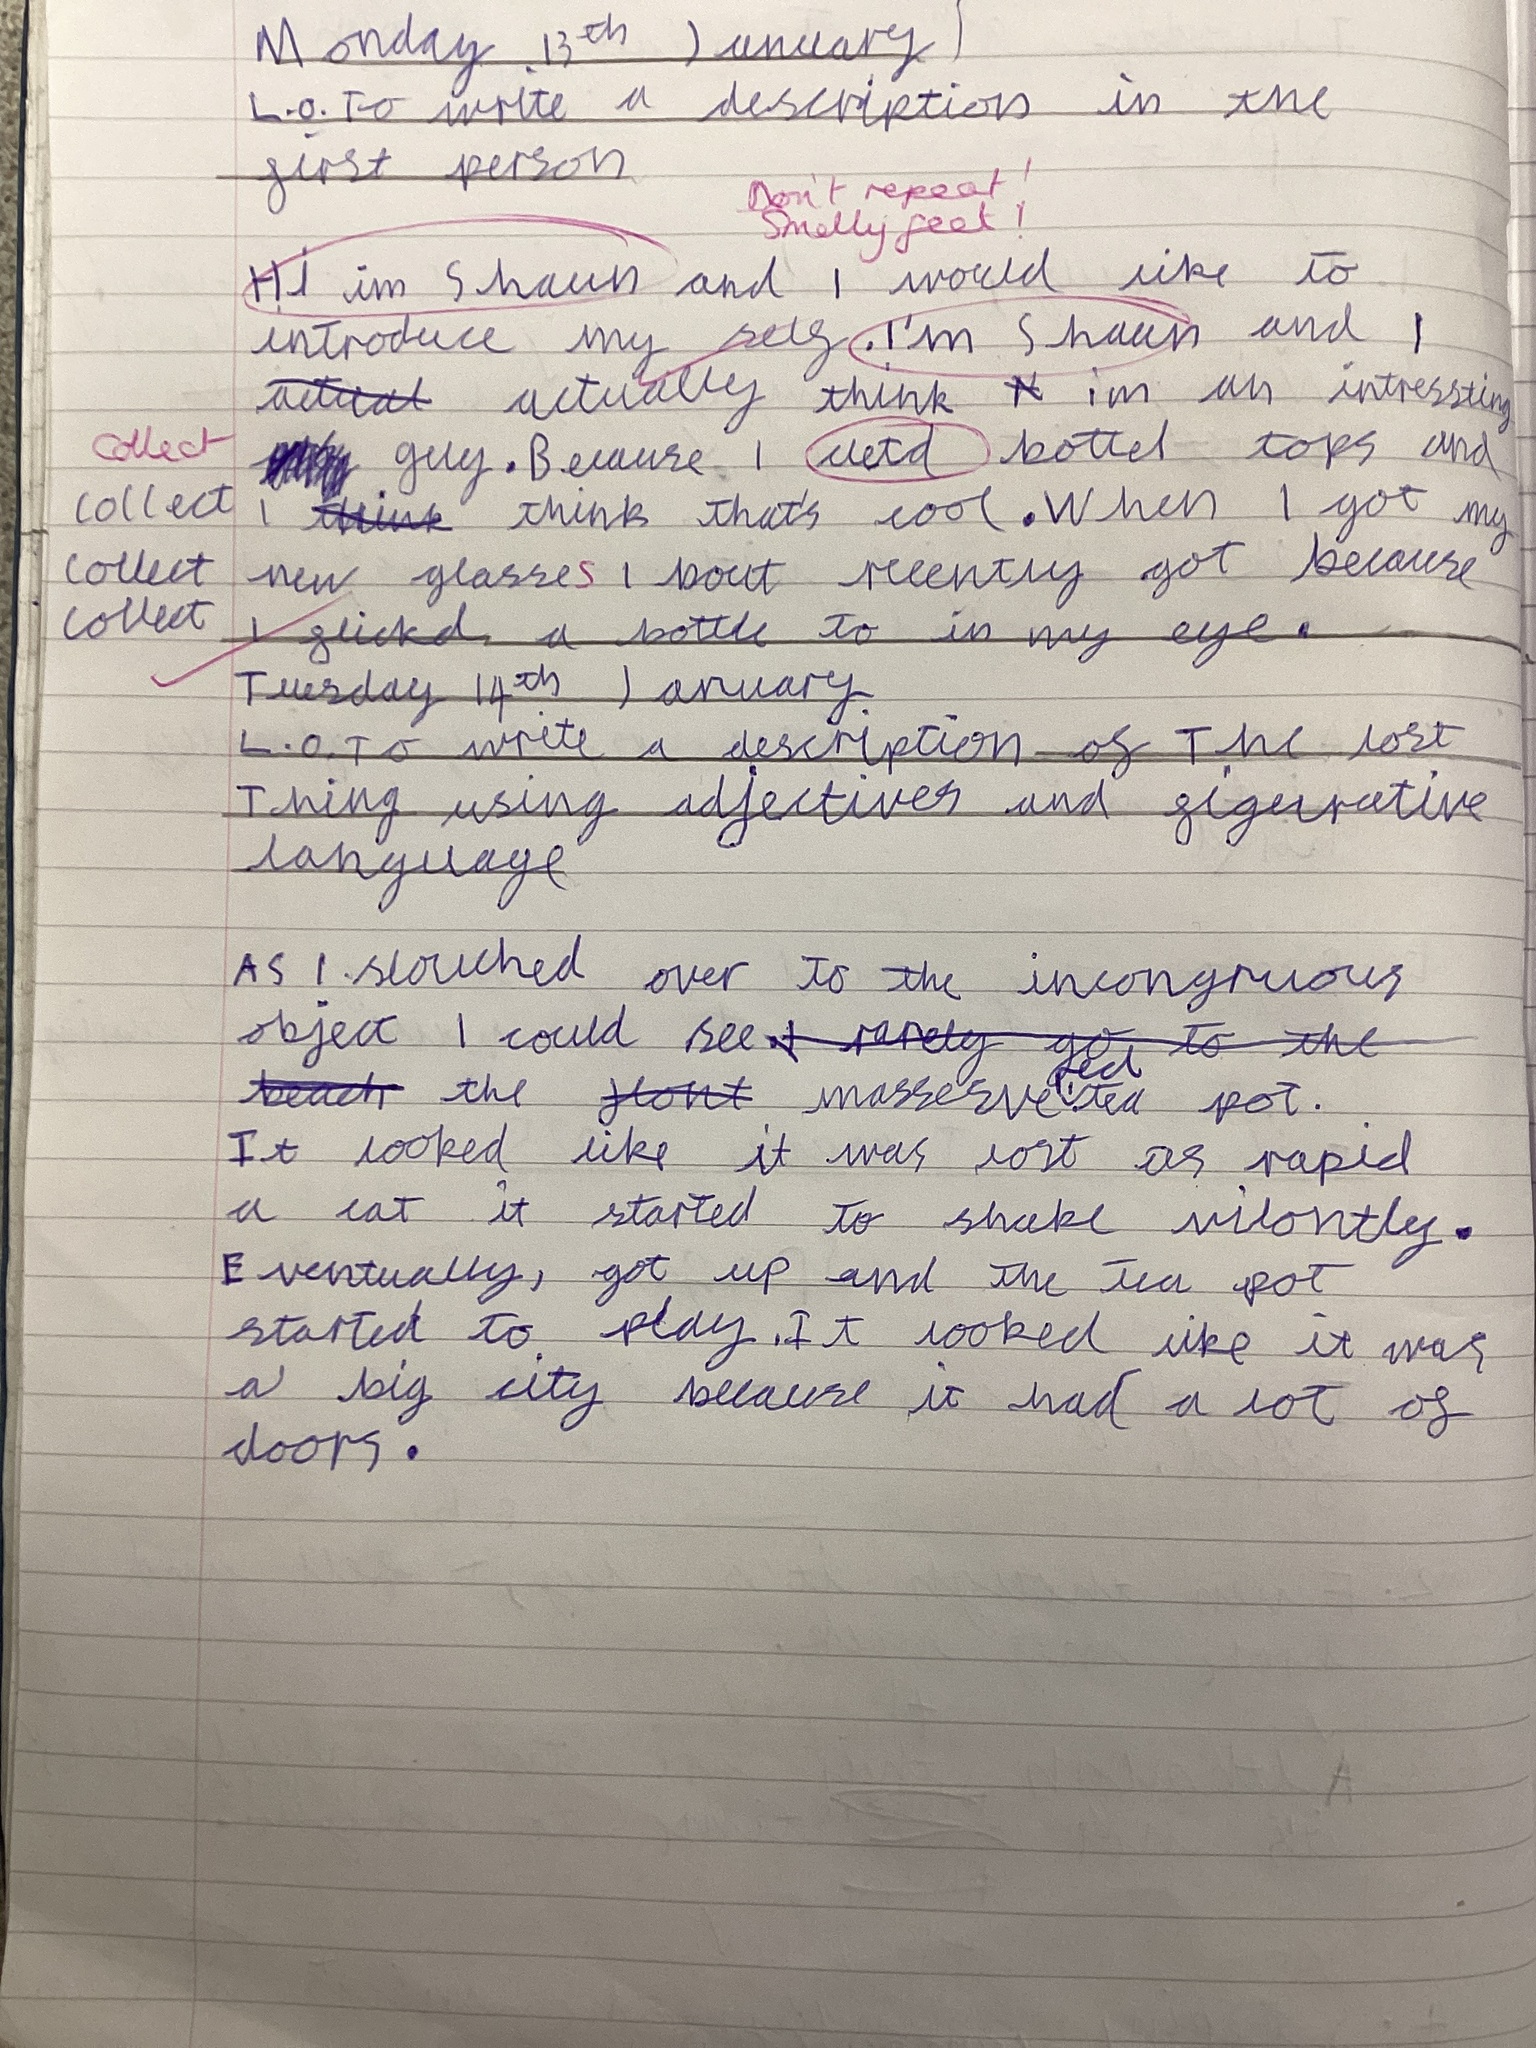 Monday 13th January
L.O. To write a description in the
first person
Don't repeat!
Smelly feet!
Hi im Shaun and I would like to
introduce my self. I'm Shaun and I
actual actually think im an intressting
collect guy. Because I cletd bottel tops and
collect I think think that's cool. When I got my
collect new glasses I bout recently got because
collect I flickd a bottle to in my eye.
Tuesday 14th January
L.O. To write a description of The lost
Thing using adjectives and figurative
language
As I slouched over to the incongruous
object I could see. I rarely go to the
beach the front massesve red tea pot.
It looked like it was lost as rapid
a cat it started to shake vilontly.
Eventually, got up and the tea pot
started to play. It looked like it was
a big city because it had a lot of
doors.